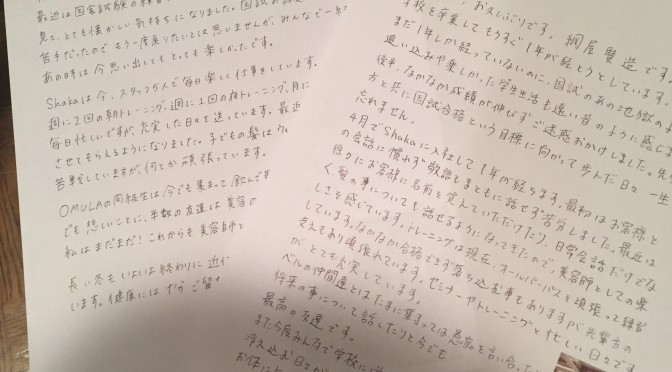 最近は国家試験の
見て、とても懐かしい気持ちになりました。国試の
苦手だったのでもう一度戻りたいとは思いませんが、みんなで一
あの時は今思い出してもとっても楽しかったです。
Shakaは今、スタッフ5人で毎日楽しく仕事をしています。
週に2回の朝トレーニング、週に1回の夜トレーニング、月に
毎日忙しいですが、充実した日々を送っています。最近
させてもらえるようになりました。子どもの髪は
苦戦していますが、何とか頑張っています。
OMULAの同級生は今でも集まって飲んで
でも悲しいことに、半数の友達は美容の
私はまだまだ!これからも美容師と
長い冬もいよいよ終わりに近
います。健康には十分ご留
おひさしぶりです。網屋賢造です。
学校を卒業してもうすぐ1年が経とうとしています。
まだ1年しか経っていないのに、国試のあの地獄の
追い込みや楽しかった学生生活も遠い昔のように感じ
後半、なかなか成績が伸びずご迷惑おかけしました。先
方と共に国試合格という目標に向かって歩んだ日々一生
忘れません。
4月でShakaに入社して1年が経ちます。最初はお客様と
の会話に慣れず敬語もまともに話せず苦労しました。最近は
徐々にお客様に名前を覚えていただけたり、日常会話だけでな
く、髪の事についても話せるようになってきたので、美容師としての楽
しさを感じています。トレーニングは現在、オールパーパスを頑張って練習
しています。なかなか合格できず落ち込む事もありますが先輩方の
支えもあり頑張れています。セミナーやトレーニングと忙しい日々です
がとても充実しています。
ベルの仲間達とはたまに集まっては愚痴を言い合った
将来の事について話したりと今でも
最高の友達です。
また今度みんなで学校に
冷え込む日々が
お体に